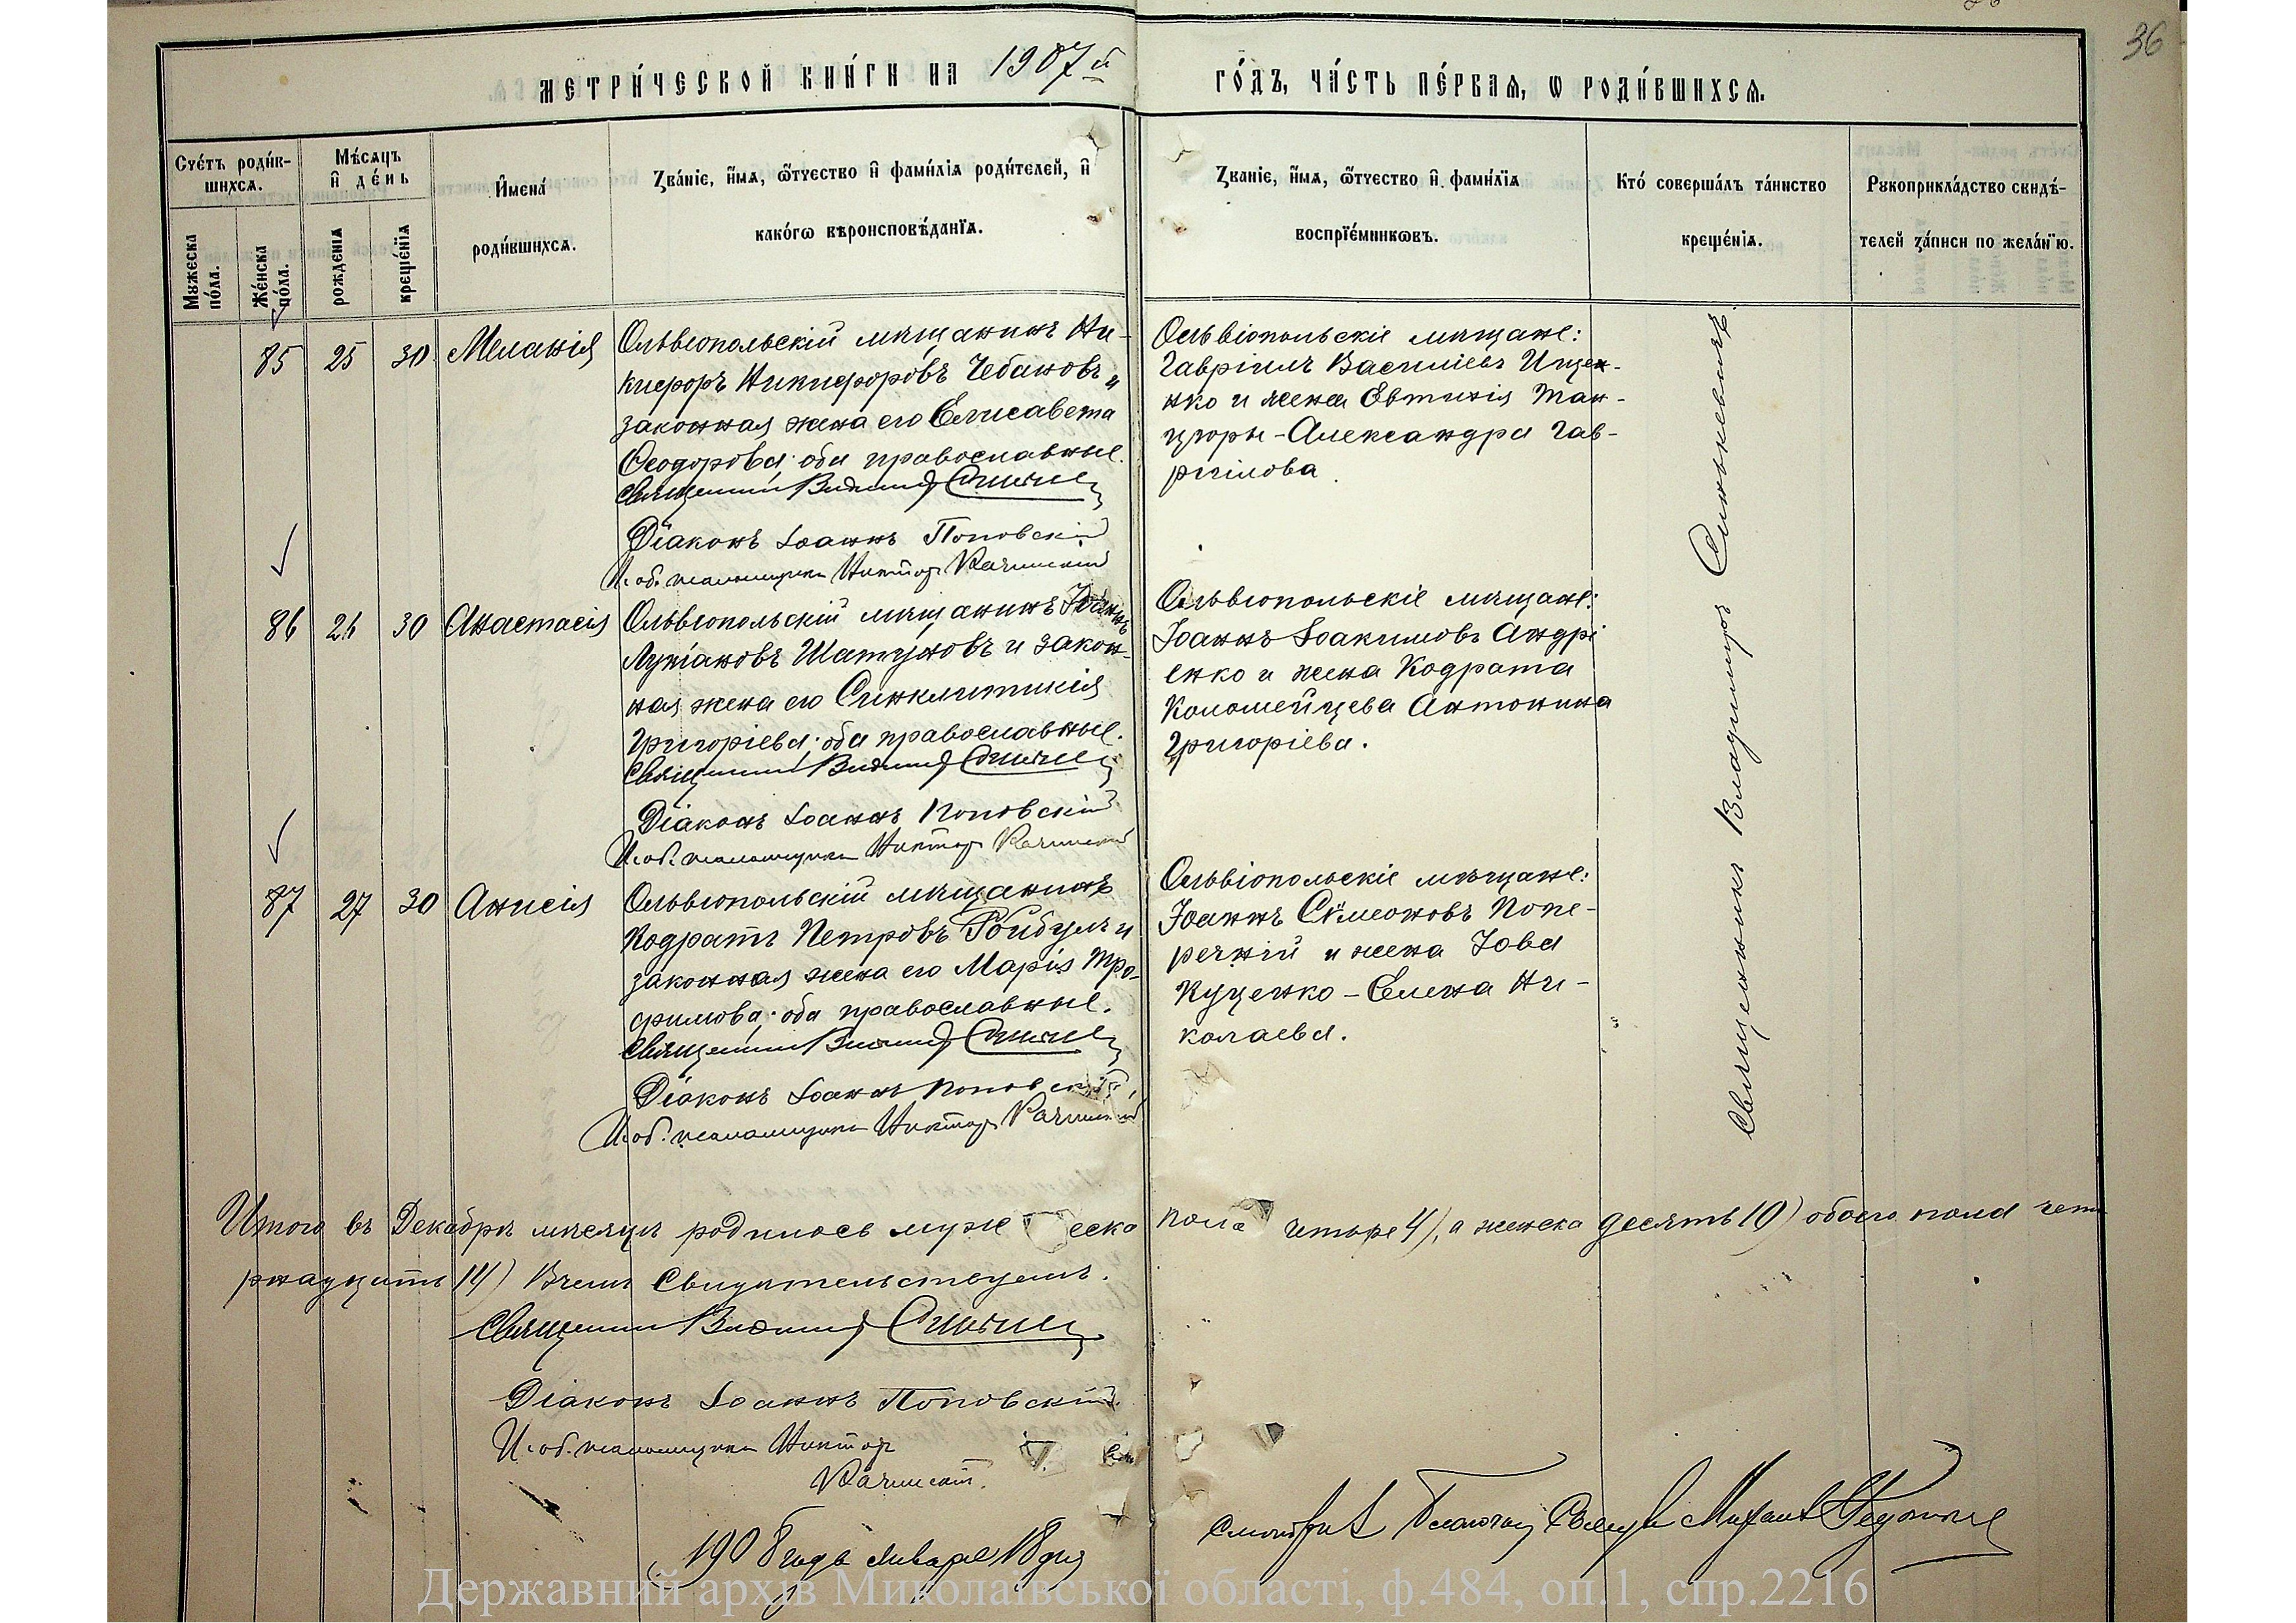 36
МЕТРИ́ЧЕСКОЙ КНИ́ГИ НА 1907й ГО́ДЪ, ЧА́СТЬ ПЕ́РВАЯ, Ѡ РОДИ́ВШИХСѦ.
Сче́тъ роди́в-
шихсѧ.
Мѣ́сѧцъ
и҆ де́нь
И҆мена́
роди́вшихсѧ.
Зва́нїе, и҆́мѧ, ѻ҆́тчество и҆ фами́лїѧ роди́телей, и҆
како́гѡ вѣроисповѣ́данїѧ.
Званїе, и҆́мѧ, ѻ҆́тчество и҆ фами́лїѧ
воспрїе́мникѡвъ.
Кто́ соверша́лъ та́инство
креще́нїѧ.
Рꙋкоприкла́дство свидѣ́-
телей за́писи по жела́нїю.
Мꙋжеска
по́ла.
Же́нска
по́ла.
рожденїѧ
креще́нїѧ
85 25 30 Меланія
Ольвіопольскій мѣщанинъ Ни-
кифоръ Никифоровъ Чебановъ и
законная жена его Елисавета
Ѳеодорова; оба православные.
Священникъ Владимиръ
Діаконъ Іоаннъ Поповскій
И. об. псаломщика Виктор Рачинскій
Ольвіопольскіе мѣщане:
Гавріилъ Василіевъ Ищен-
нко и жена Евтихія Тан-
цюры - Александра Гав-
ріилова
86 26 30 Анастасія
Ольвіопольскій мѣщанинъ Іоаннъ
Лукіановъ Шатуновъ и закон-
ная жена его Синклитикія
Григоріева; оба православные.
Священникъ Владимиръ
Діаконъ Іоаннъ Поповскій
И. об. псаломщика Виктор Рачинскій
Ольвіопольскіе мѣщане:
Іоаннъ Іоакимовъ Андрі
енко и жена Кодрата
Коломейцева Антонина
Григоріева.
87 27 30 Анисія
Ольвіопольскій мѣщанинъ
Кодратъ Петровъ и
законная жена его Марія Тро-
фимова; оба православные.
Священникъ Владимиръ
Діаконъ Іоаннъ Поповскій
И. об. псаломщика Виктор Рачинскій
Ольвіопольскіе мѣщане:
Іоаннъ Сѵмеоновъ Попе-
речній и жена Іова
Куценко - Елена Ни-
колаева.
Священникъ Владимиръ Синькевичъ
Итого въ Декабрѣ мѣсяцѣ родилось мужеска пола четыре 4), а женска десять 10) обоего пола четы
рнадцать 14) В чемъ Свидѣтельствуемъ.
Священникъ Владимиръ
Діаконъ Іоаннъ Поповскій.
И. об. псаломщика Виктор
Рачинскій.
1908 года Января 18 дня
Державний архів Миколаївської області, ф.484, оп.1, спр.2216